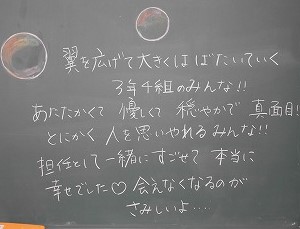 翼を広げて大きくはばたいていく
3年4組のみんな!!
あたたかくて 優しくて 穏やかで 真面目!
とにかく 人を思いやれるみんな!!
担任として一緒にすごせて 本当に
幸せでした♡ 会えなくなるのが
さみしいよ....